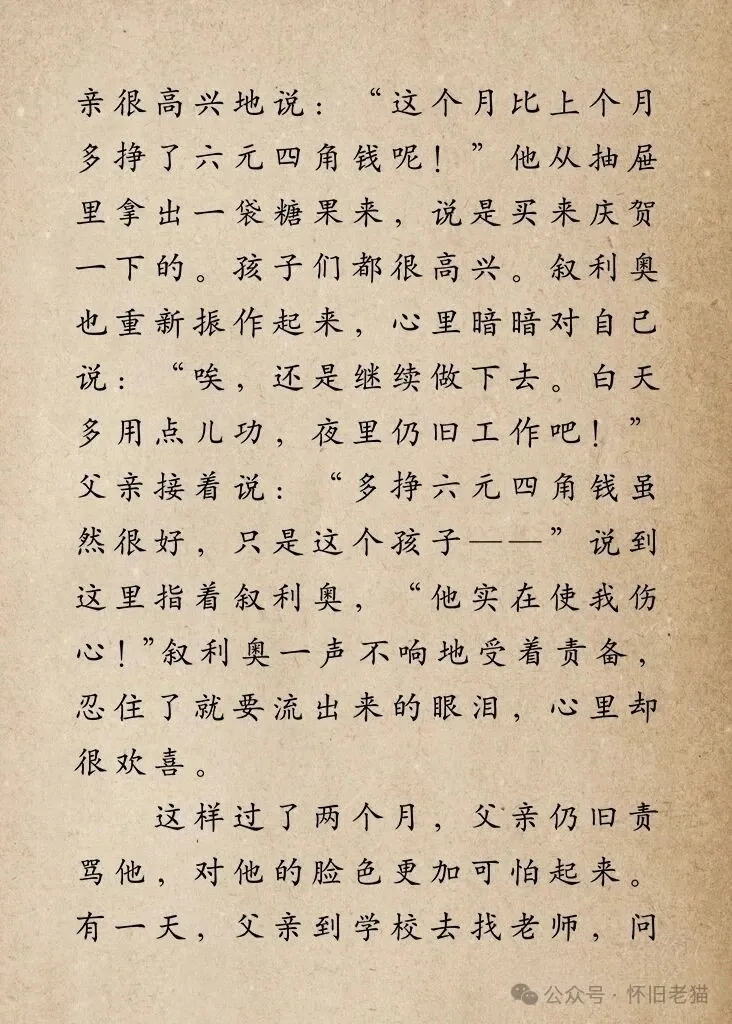 亲很高兴地说：“这个月比上个月
多挣了六元四角钱呢！”他从抽屉
里拿出一袋糖果来，说是买来庆贺
一下的。孩子们都很高兴。叙利奥
也重新振作起来，心里暗暗对自己
说：“唉，还是继续做下去。白天
多用点儿功，夜里仍旧工作吧！”
父亲接着说：“多挣六元四角钱虽
然很好，只是这个孩子——”说到
这里指着叙利奥，“他实在使我伤
心！”叙利奥一声不响地受着责备，
忍住了就要流出来的眼泪，心里却
很欢喜。
这样过了两个月，父亲仍旧责
骂他，对他的脸色更加可怕起来。
有一天，父亲到学校去找老师，问
公众号·怀旧老猫